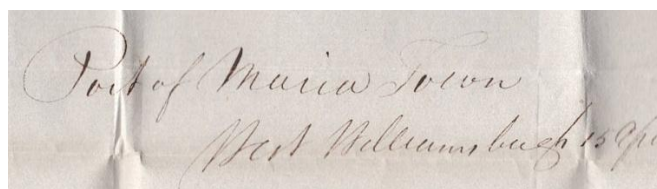 Port of Maria Town
West Williamsburgh 15 Apl